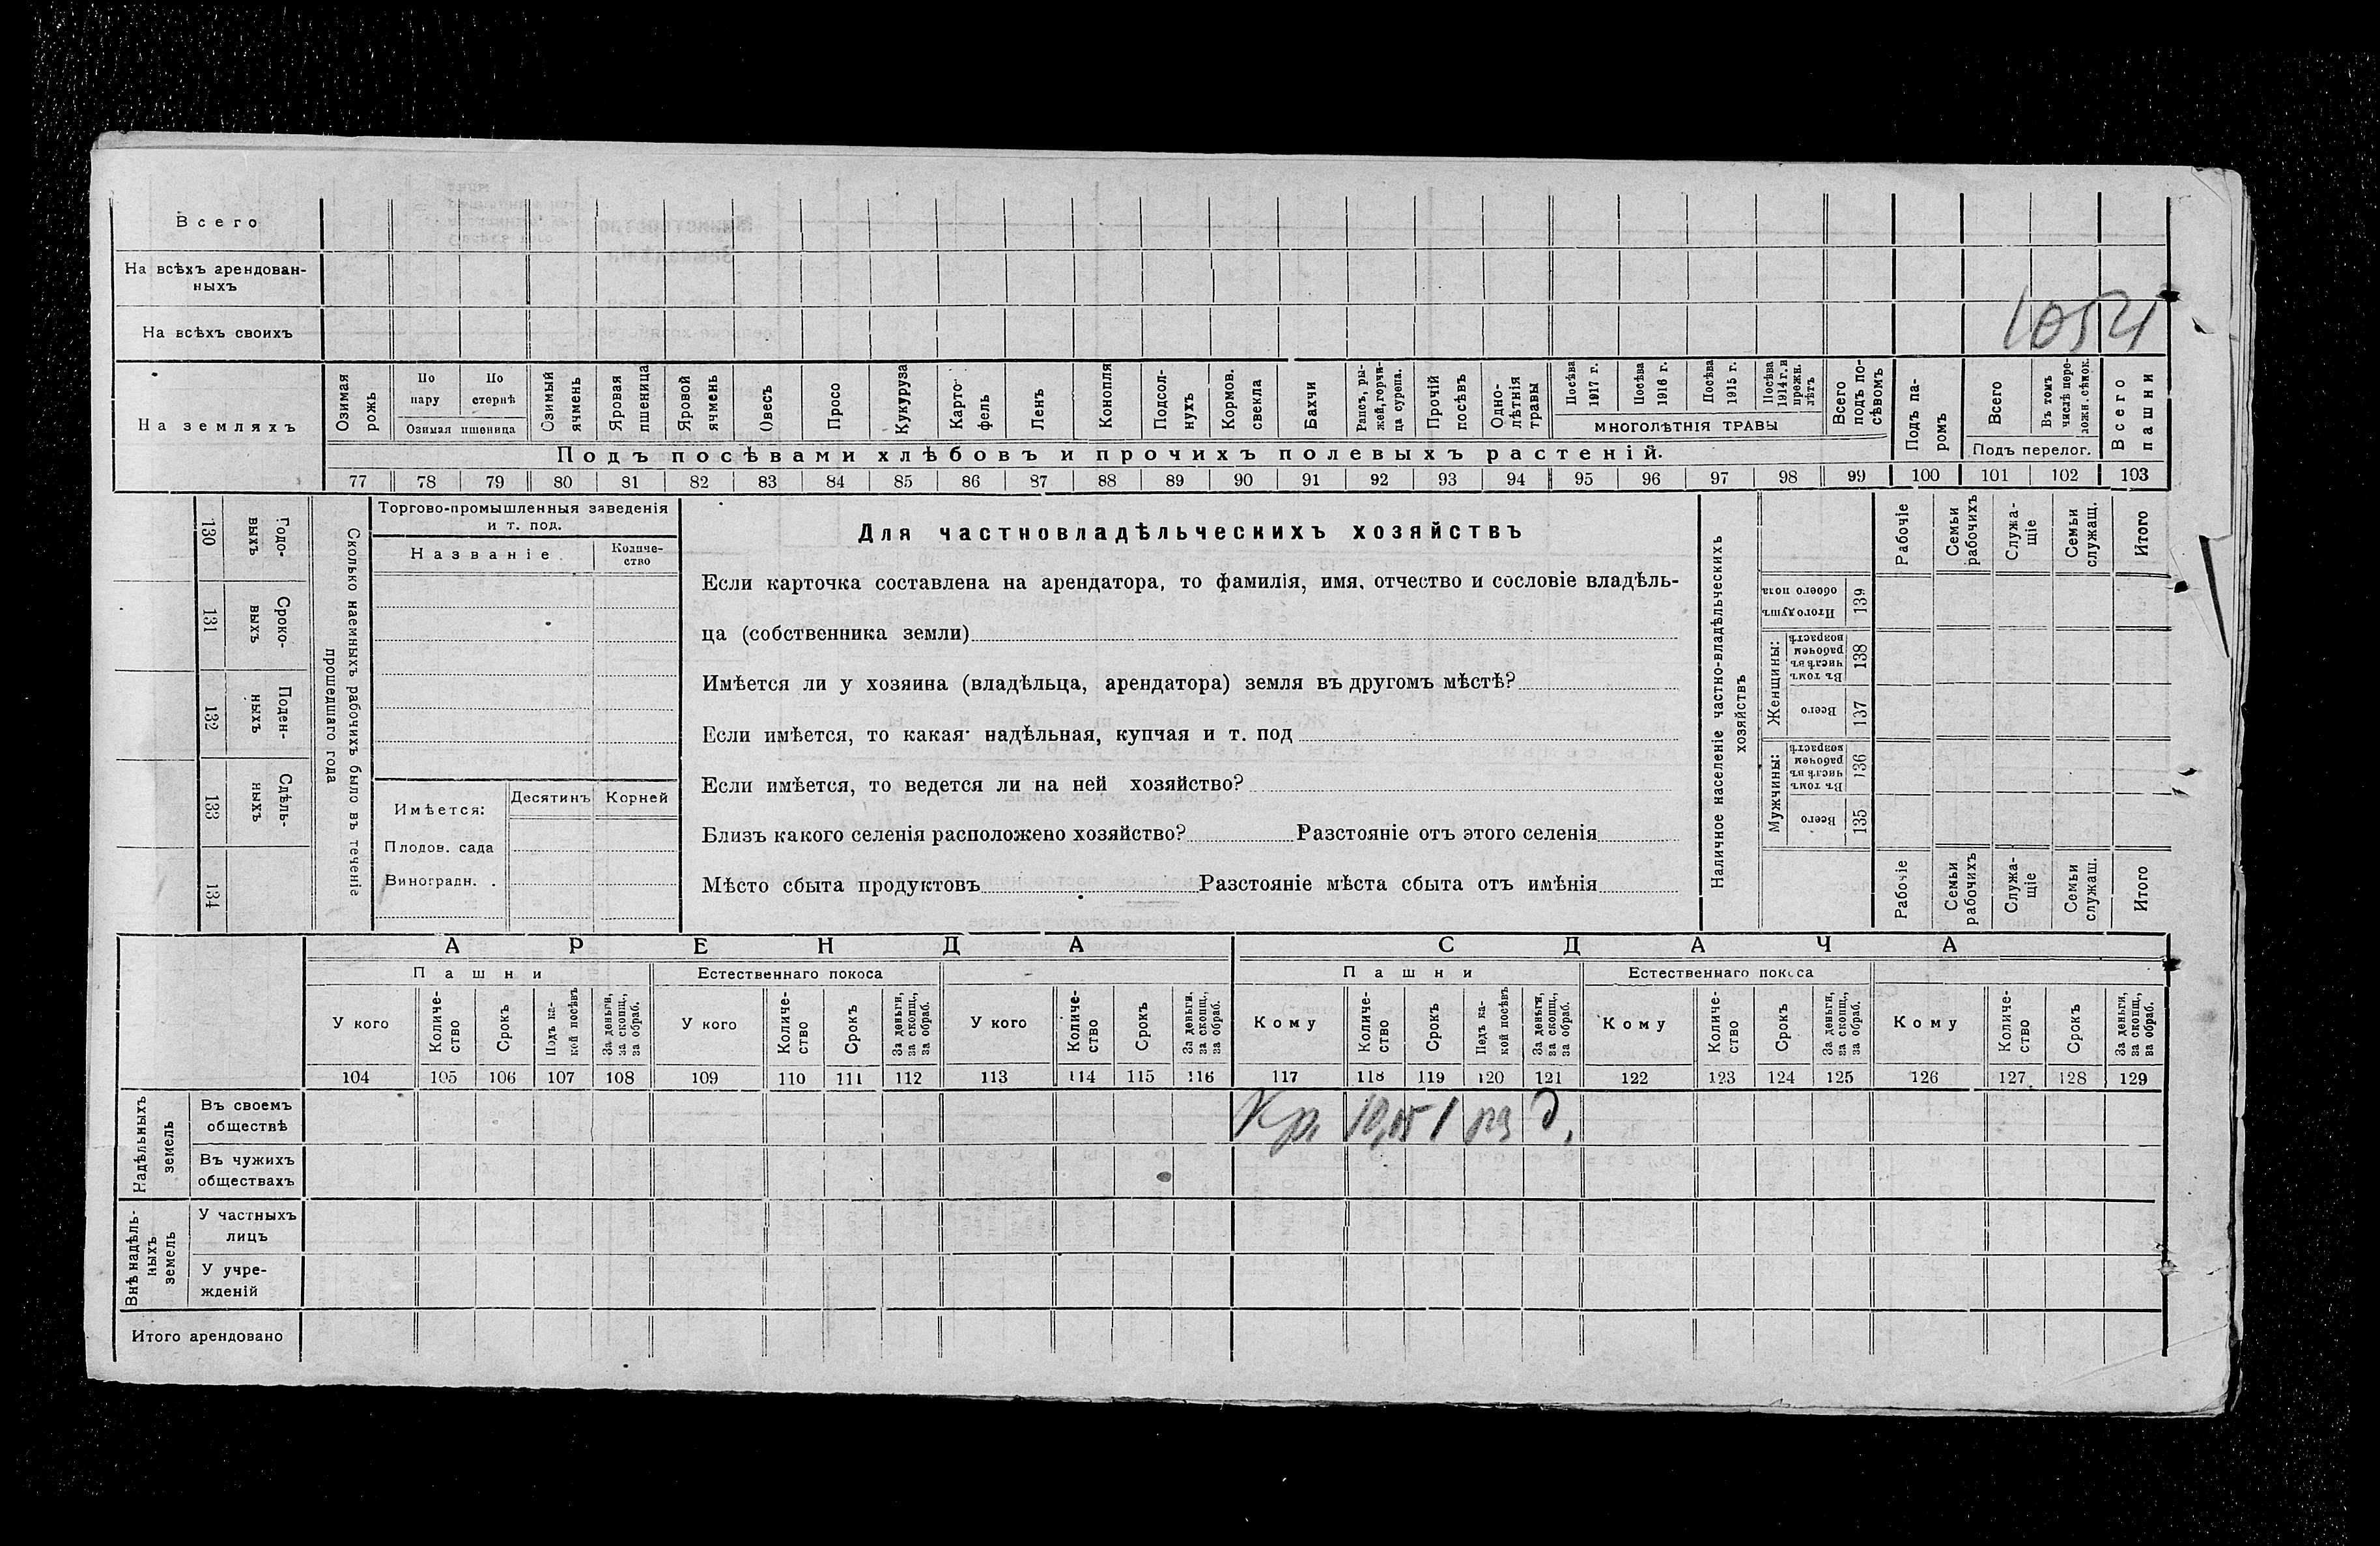 Всего
На всѣхъ арендован-
ныхъ
На всѣхъ своихъ
На земляхъ
Озимая рожь
По пару
По стернѣ
Озимая пшеница
Озимый ячмень
Яровая пшеница
Яровой ячмень
Овесъ
Просо
Кукуруза
Карто-
фель
Ленъ
Конопля
Подсол-
нухъ
Кормов. свекла
Бахчи
Рапсъ, ры-
жей, горчи-
ца сурепа.
Прочій посѣвъ
Одно-
лѣтнія травы
Посѣва 1917 г.
Посѣва 1916 г.
Посѣва 1915 г.
Посѣва 1914 г. и прежн. лѣтъ
МНОГОЛѢТНІЯ ТРАВЫ
Всего подъ по-
сѣвомъ
Подъ па-
ромъ
Всего
Въ томъ числѣ пере-
ложн. сѣнок.
Подъ перелог.
Всего пашни
Подъ посѣвами хлѣбовъ и прочихъ полевыхъ растеній.
77 78 79 80 81 82 83 84 85 86 87 88 89 90 91 92 93 94 95 96 97 98 99 100 101 102 103
130 Годо-
выхъ
131 Сроко-
выхъ
132 Поден-
ныхъ
133 Сдѣль-
ныхъ
134
Сколько наемныхъ рабочихъ было въ теченіе
прошедшаго года
Торгово-промышленныя заведенія
и т. под.
Названіе
Количе-
ство
Имѣется:
Десятинъ
Корней
Плодов. сада
Виноградн.
Для частновладѣльческихъ хозяйствъ
Если карточка составлена на арендатора, то фамилія, имя, отчество и сословіе владѣль-
ца (собственника земли)
Имѣется ли у хозяина (владѣльца, арендатора) земля въ другомъ мѣстѣ?
Если имѣется, то какая: надѣльная, купчая и т. под
Если имѣется, то ведется ли на ней хозяйство?
Близъ какого селенія расположено хозяйство? Разстояніе отъ этого селенія
Мѣсто сбыта продуктовъ Разстояніе мѣста сбыта отъ имѣнія
Наличное населеніе частно-владѣльческихъ
хозяйствъ
Рабочіе
Семьи рабочихъ
Служа-
щіе
Семьи служащ.
Итого
Итого душъ обоего пола
139
Женщины:
Въ томъ числѣ въ рабочемъ возрастѣ
138
Всего
137
Мужчины:
Въ томъ числѣ въ рабочем возрастѣ
136
Всего
135
Рабочіе
Семьи рабочихъ
Служа-
щіе
Семьи служащ.
Итого
АРЕНДА
СДАЧА
Пашни
Естественнаго покоса
Пашни
Естественнаго покоса
У кого
Количе-
ство
Срокъ
Подъ ка-
кой посѣвъ
За деньги, за скопщ., за обраб.
У кого
Количе-
ство
Срокъ
За деньги, за скопщ., за обраб.
У кого
Количе-
ство
Срокъ
За деньги, за скопщ., за обраб.
Кому
Количе-
ство
Срокъ
Подъ ка-
кой посѣвъ
За деньги, за скопщ., за обраб.
Кому
Количе-
ство
Срокъ
За деньги, за скопщ., за обраб.
Кому
Количе-
ство
Срокъ
За деньги, за скопщ., за обраб.
104 105 106 107 108 109 110 111 112 113 114 115 116 117 118 119 120 121 122 123 124 125 126 127 128 129
Надѣльныхъ
земель
Въ своемъ
обществѣ
Кр.
Въ чужихъ
обществахъ
Внѣ надѣль-
ныхъ
земель
У частныхъ
лицъ
У учре-
жденій
Итого арендовано